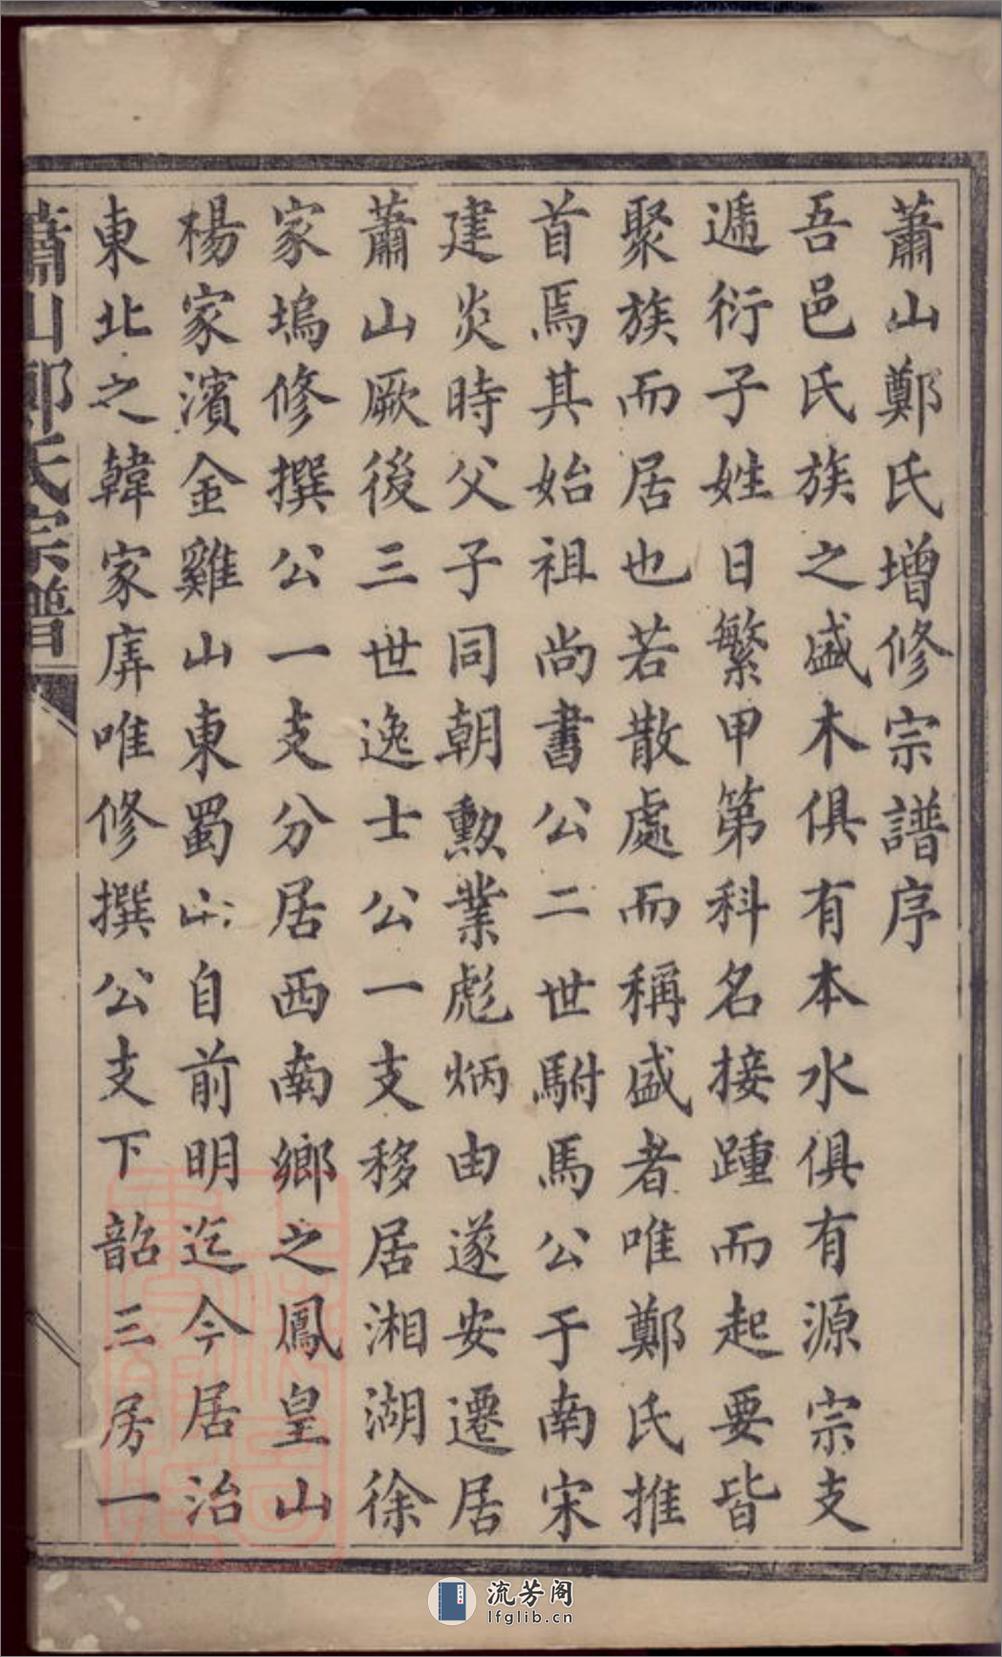 蕭山鄭氏增修宗譜序
吾邑氏族之盛木俱有本水俱有源宗支
遞衍子姓日繁甲第科名接踵而起要皆
聚族而居也若散處而稱盛者唯鄭氏推
首焉其始祖尚書公二世駙馬公于南宋
建炎時父子同朝勲業彪炳由遂安遷居
蕭山厥後三世逸士公一支移居湘湖徐
家塢修撰公一支分居西南鄉之鳳皇山
楊家濱金雞山東蜀山自前明迄今居治
東北之韓家㡳唯修撰公支下韶三房一
蕭山鄭氏宗譜
流芳阁
lfglib.cn